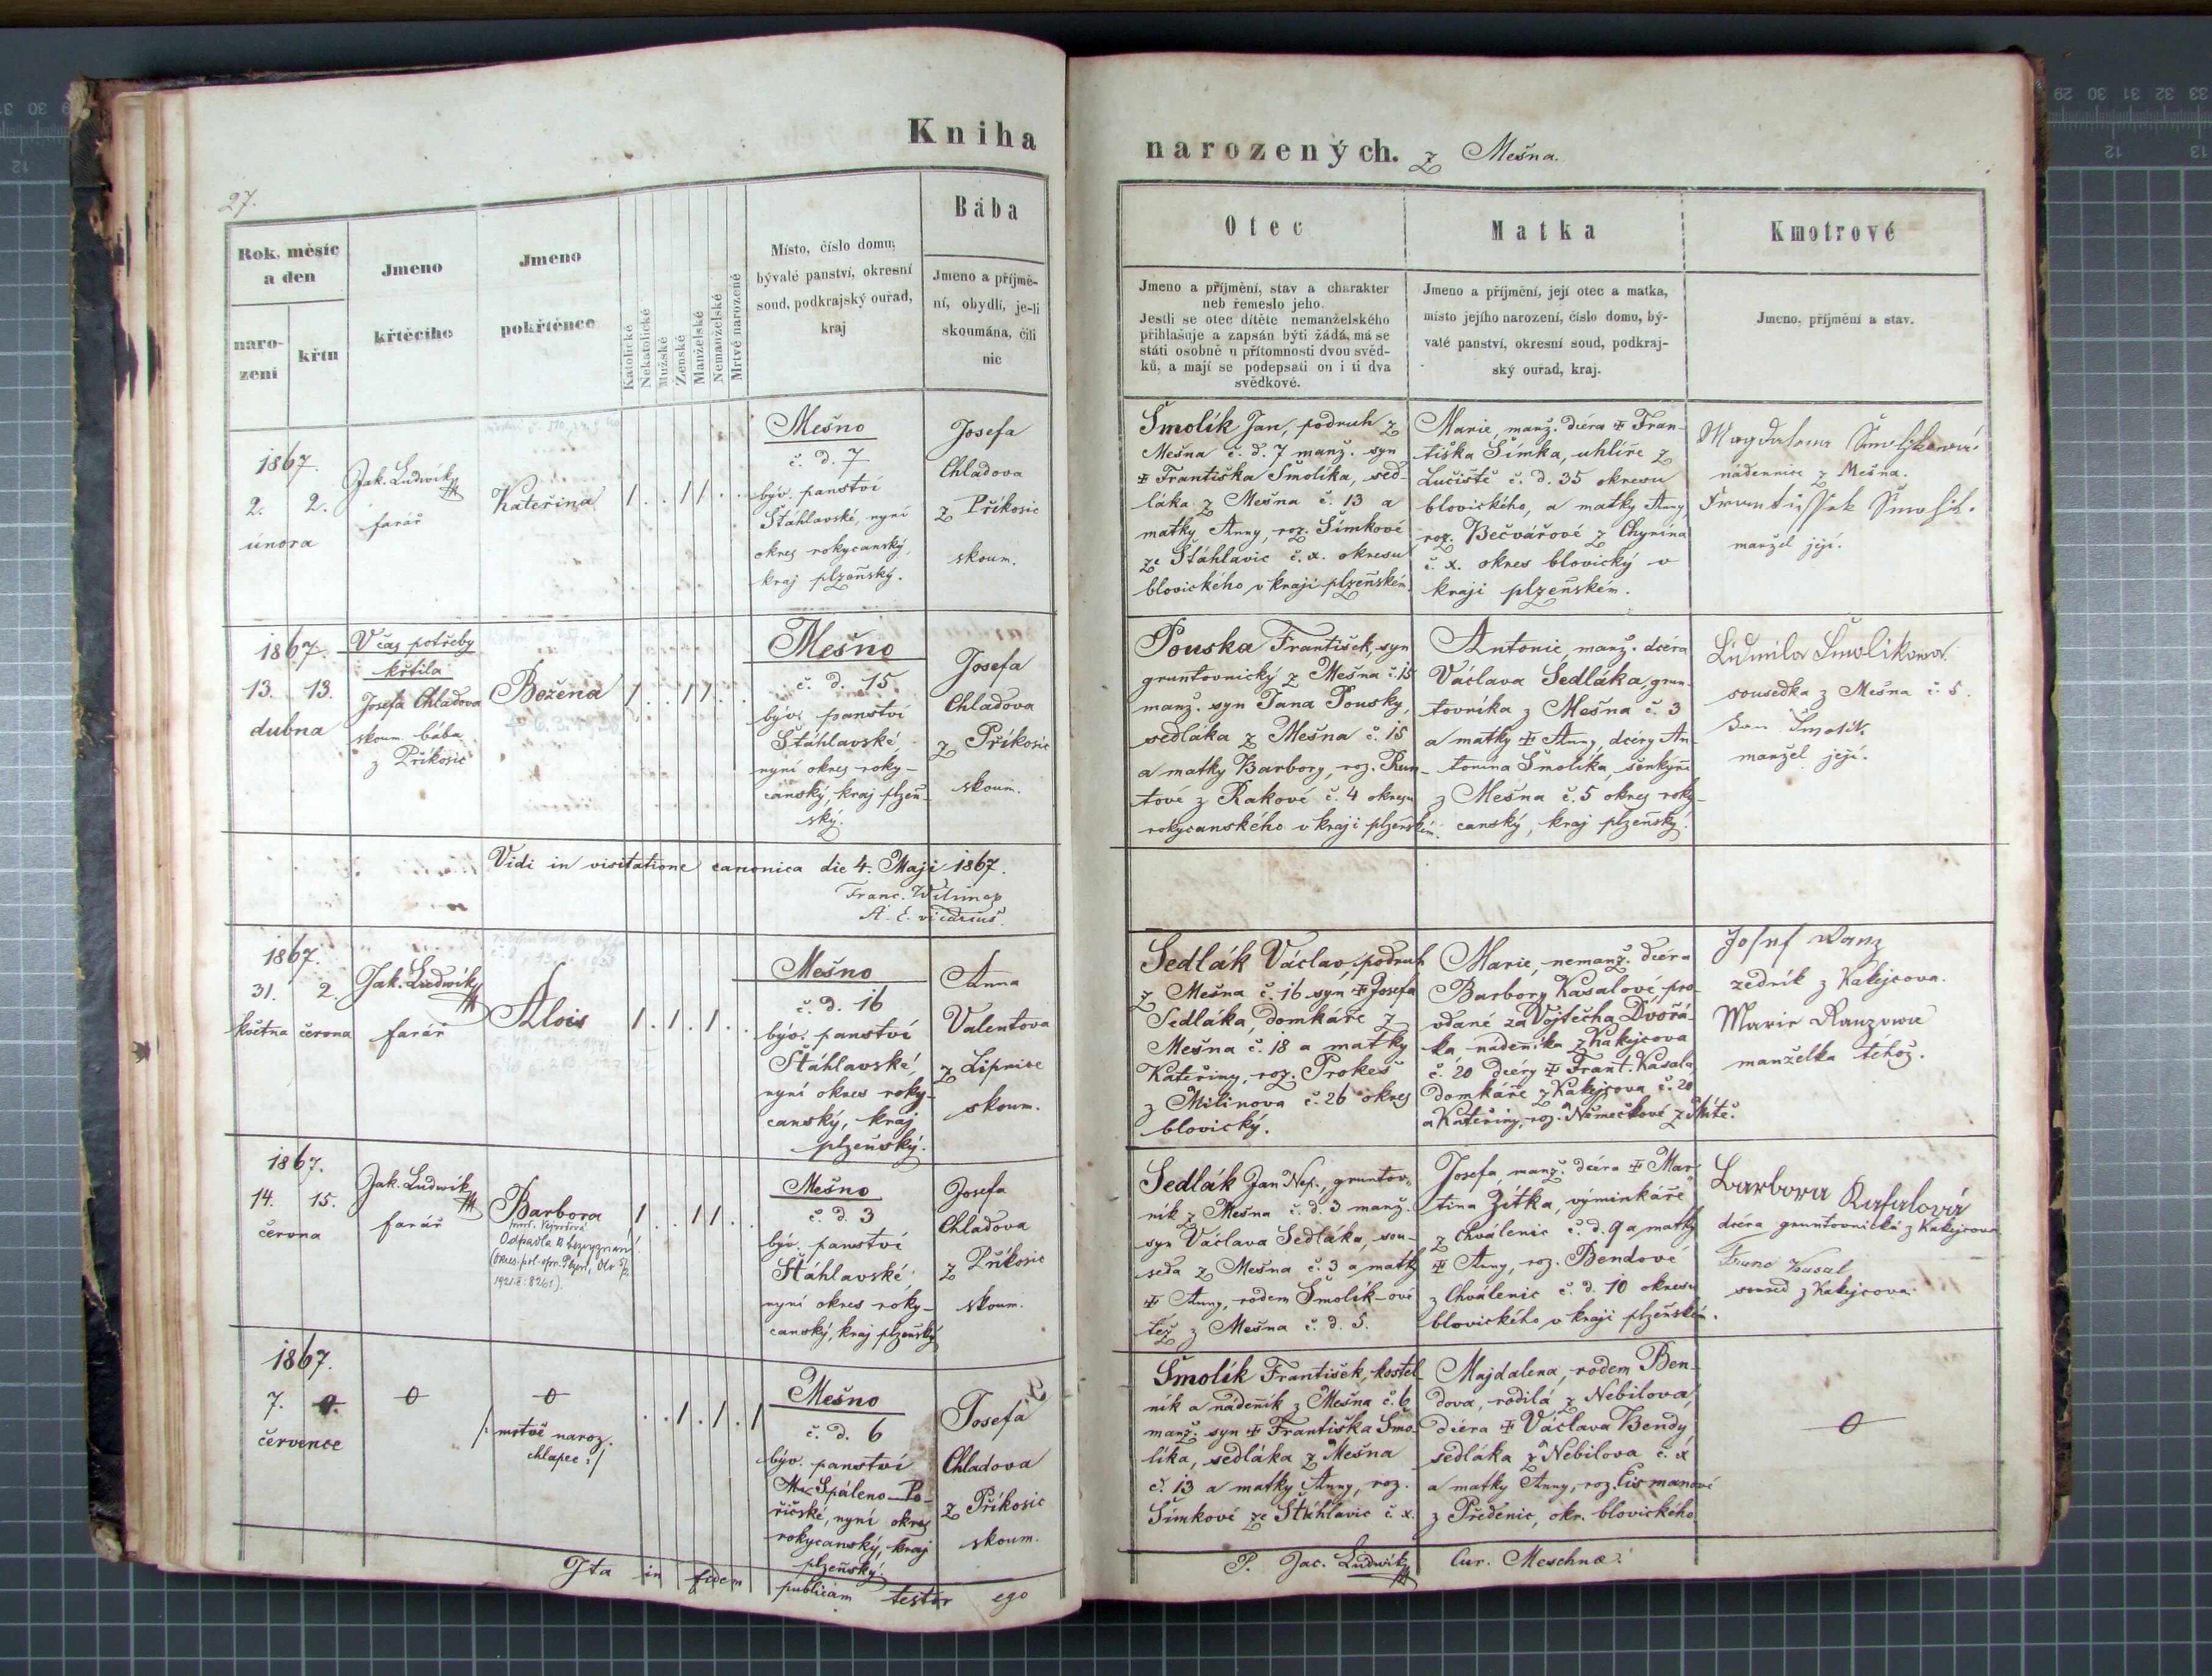 Kniha
27.
Rok, měsíc
a den
naro-
zení
křtu
Jmeno
křtěcího
Jmeno
pokřtěnce
Katolické
Nekatolické
Mužské
Ženské
Manželské
Nemanželské
Mrtvé narozené
Místo, číslo domu,
bývalé panství, okresní
soud, podkrajský ouřad,
kraj
Bába
Jmeno a příjme-
ní, obydlí, je-li
skoumána, čili
nic
1867.
2. 2.
února
Jak. Ludwík
farář
Kateřina
1 . . 1 1 . .
Mešno
č. d. 7
býv. panství
Štáhlavské, nyní
okres rokycanský,
kraj plzeňský.
Josefa
Chladova
z Příkosic
skoum.
1867.
13. 13.
dubna
V čas potřeby
křtila
Josefa Chladova
skoum. bába
z Příkosic
Božena
1 . . 1 1 . .
Mešno
č. d. 15
býv. panství
Štáhlavské,
nyní okres roky-
canský, kraj plzeň-
ský.
Josefa
Chladova
z Příkosic
skoum.
Vidi in visitatione canonica die 4. Maji 1867.
Franc.
vicarius.
1867.
31. 2.
května června
Jak. Ludwík
farář
Alois
1 . 1 . 1 . .
Mešno
č. d. 16
býv. panství
Štáhlavské,
nyní okres roky-
canský, kraj
plzeňský.
Anna
Valentova
z Lipnice
skoum.
1867.
14. 15.
června
Jak. Ludwík
farář
Barbora
Odpadla k bezvyznání.
1 . . 1 1 . .
Mešno
č. d. 3
býv. panství
Štáhlavské,
nyní okres roky-
canský, kraj plzeňský
Josefa
Chladova
z Příkosic
skoum.
1867.
7. 0.
července
0
0
/: mrtvě naroz.
chlapec :/
. . 1 . 1 . 1
Mešno
č. d. 6
býv. panství
Spáleno-Po-
říčské, nyní okres
rokycanský, kraj
plzeňský.
Josefa
Chladova
z Příkosic
skoum.
Ita in fidem publicam testor ego
narozených. z Mešna.
Otec
Jmeno a příjmění, stav a charakter
neb řemeslo jeho.
Jestli se otec dítěte nemanželského
přihlašuje a zapsán býti žádá, má se
státi osobně u přítomnosti dvou svěd-
ků, a mají se podepsati on i ti dva
svědkové.
Matka
Jmeno a příjmění, její otec a matka,
místo jejího narození, číslo domu, bý-
valé panství, okresní soud, podkraj-
ský ouřad, kraj.
Kmotrové
Jmeno, příjmění a stav.
Smolík Jan, podruh z
Mešna č. d. 7 manž. syn
✠ Františka Smolíka, sed-
láka z Mešna č. 13 a
matky Anny, roz. Šimkové
ze Štáhlavic č. x. okresu
blovického v kraji plzeňském.
Marie, manž. dcéra ✠ Fran-
tiška Šimka, uhlíře z
Lučiště č. d. 35 okresu
blovického, a matky Anny
roz. Bečvářové z Chynína
č. x. okres blovický v
kraji plzeňském.
Magdalena Smolikowá
nádennice z Mešna.
Frantissek Smolik.
manžel její.
Pouska František, syn
gruntovnický z Mešna č. 15
manž. syn Jana Pousky,
sedláka z Mešna č. 15
a matky Barbory, roz. Run-
tové z Rakové č. 4 okresu
rokycanského v kraji plzeňském.
Antonie, manž. dcéra
Václava Sedláka, grun-
tovníka z Mešna č. 3
a matky ✠ Anny, dcéry An-
tonína Smolíka, šenkýře
z Mešna č. 5 okres roky-
canský, kraj plzeňský.
Ludmila Smolikowa
sousedka z Mešna č. 5.
Jan Smolik
manžel její.
Sedlák Václav, podruh
z Mešna č. 16 syn ✠ Josefa
Sedláka, domkáře z
Mešna č. 18 a matky
Kateřiny, roz. Prokeš
z Milinova č. 26 okres
blovický.
Marie, nemanž. dcéra
Barbory Kasalové, pro-
vdané za Vojtěcha Dvořá-
ka nádeníka z Kakejcova
č. 20 dcery ✠ Frant. Kasala,
domkáře z Kakejcova č. 20
a Kateřiny, roz. Němečkové z Mítě.
Josef Ranz
zedník z Kakejcova.
Marie Ranzowa
manželka téhož.
Sedlák Jan Nep., gruntov-
ník z Mešna č. d. 3 manž.
syn Václava Sedláka, sou-
seda z Mešna č. 3 a matky
✠ Anny, rodem Smolík-ové
též z Mešna č. d. 5.
Josefa, manž. dcéra ✠ Mar-
tina Zítka, výminkáře
z Chválenic č. d. 9 a matky
✠ Anny, roz. Bendové
z Chválenic č. d. 10 okresu
blovického v kraji plzeňském.
Barbora Kasalová
dcéra gruntovnická z Kakejcova
Franc Kasal
soused z Kakejcova.
Smolík František, kostel-
ník a nádeník z Mešna č. 6
manž. syn ✠ Františka Smo-
líka, sedláka z Mešna
č. 13 a matky Anny, roz.
Šimkové ze Štáhlavic č. x.
Majdalena, rodem Ben-
dova, rodilá z Nebílova,
dcéra ✠ Václava Bendy,
sedláka z Nebílova č. x
a matky Anny, roz. Eismanové
z Předenic, okr. blovického
0
P. Jac. Ludwík Cur. Meschnæ.